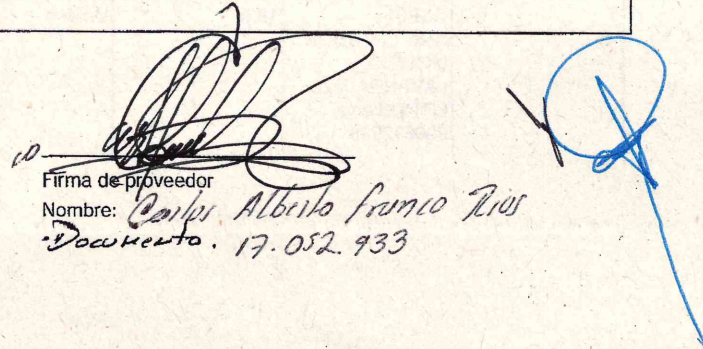 Firma de proveedor
Nombre: Carlos Alberto Franco Rios
Documento. 17.052.933